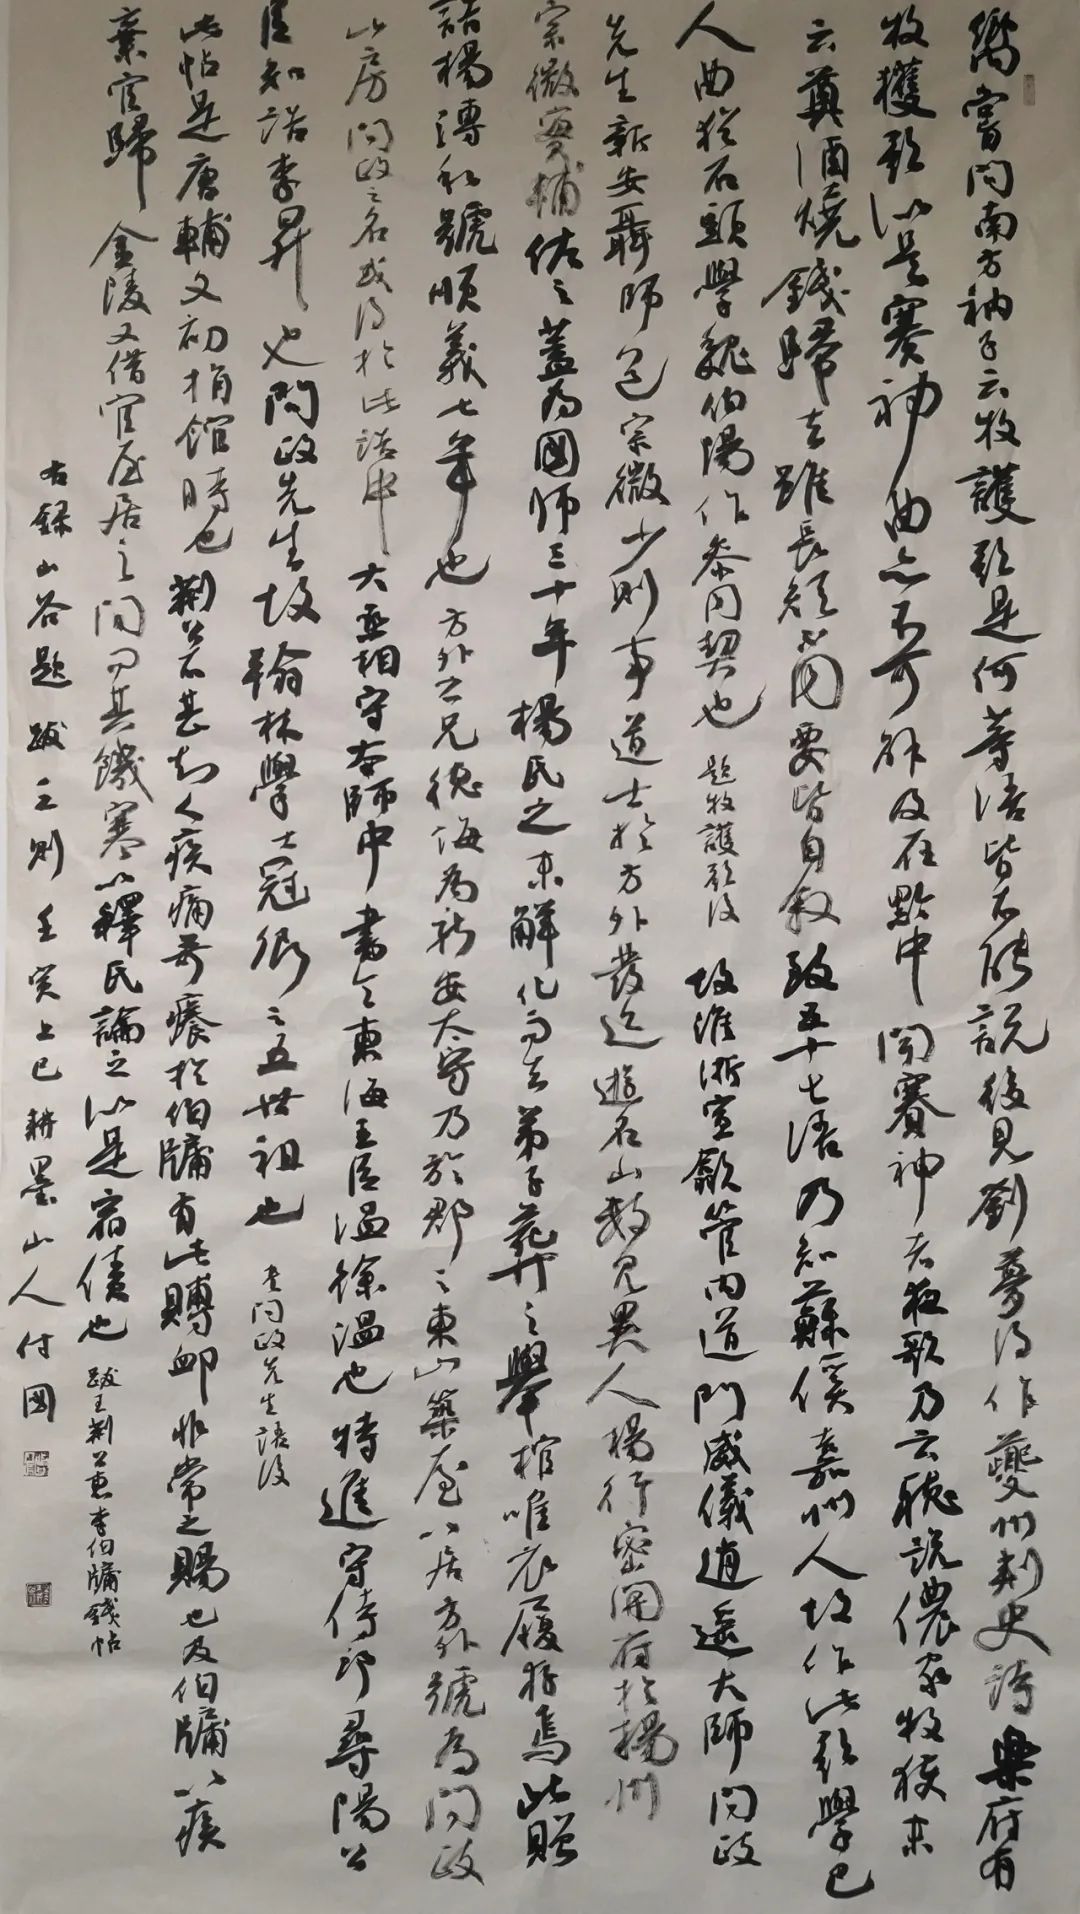 向嘗問南方衲子云牧護歌是何等語皆不能說後見劉夢得作夔州刺史詩樂府有
牧護歌似是賽神曲亦不可解及在黔中聞賽神者夜歌乃云聽說儂家牧護末
云奠酒燒錢歸去雖長短不同要皆自敘致五十七語乃知蘇傒嘉州人故作此歌學巴
人曲猶石頭學魏伯陽作參同契也 題牧護歌後 故淮浙宣歙管內道門威儀逍遙大師問政
先生新安聶師道宗微少則事道士於方外發迹遊名山數見異人楊行密開府於揚州
宗微實輔佐之蓋為國師三十年楊氏之末解化而去弟子葬之舉棺唯衣履存焉此贈
誥楊溥私號順義七年也方外之兄德誨為新安太守乃於郡之東山築屋以居方外號為問政
山房問政之名或得於此誥中大丞相守太師中書令東海王臣溫徐溫也特進守侍郎尋陽公
臣知誥李昇也問政先生故翰林學士冠卿之五世祖也 書問政先生誥後
此帖是唐輔文初捐館時也荊公不甚知人疾痛苛癢於伯牖有此賻卹非常之賜也及伯牖以疾
棄官歸金陵又借官屋居之間問其饑寒以釋氏論之似是宿債也 跋王荊公惠李伯牖錢帖
右錄山谷題跋三則 壬寅上巳耕墨山人付國